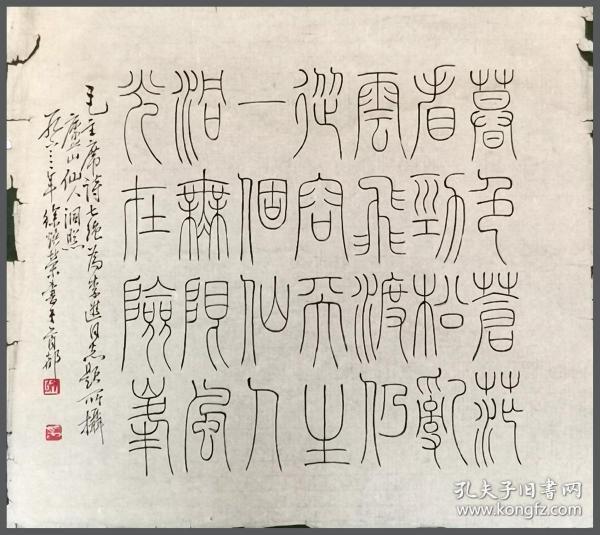 暮色蒼茫
看勁松亂
雲飛渡仍
從容天生
一個仙人
洞無限風
光在險峯
毛主席诗七绝為李進同志題所攝
廬山仙人洞照
年徐榮書于首都
孔夫子旧书网
www.kongfz.com